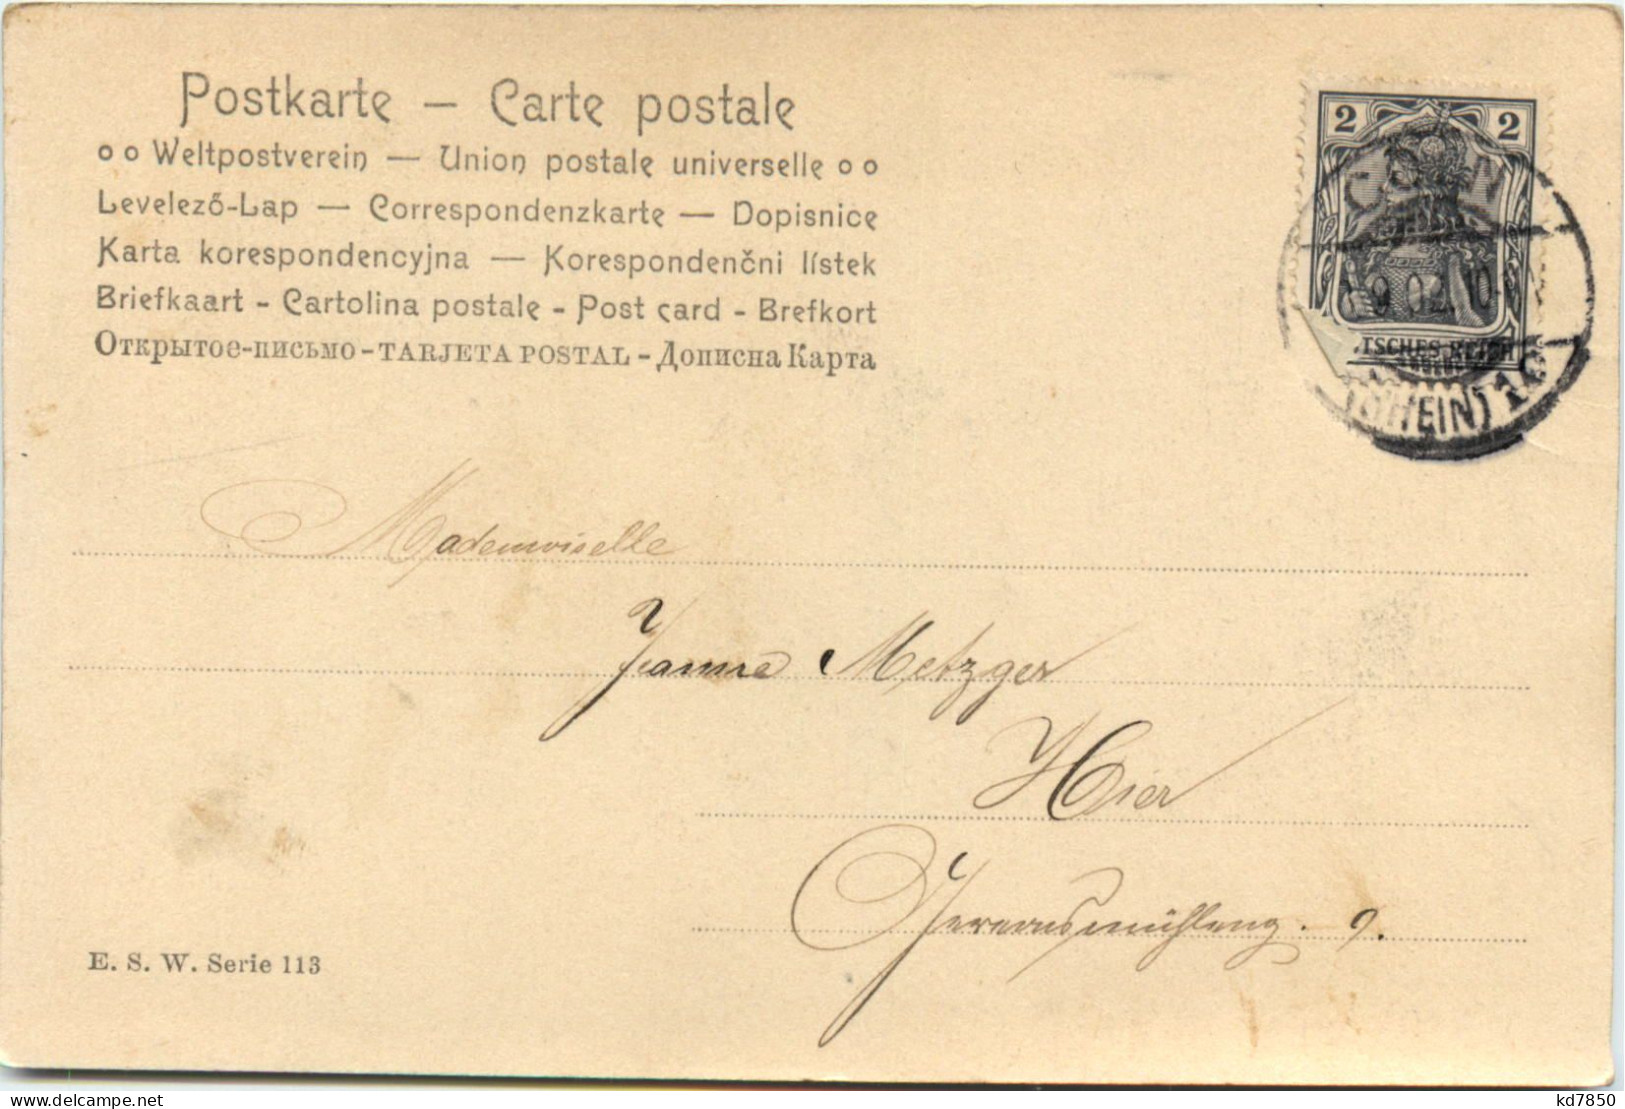 Postkarte – Carte postale
oo Weltpostverein — Union postale universelle oo
Levelező-Lap — Correspondenzkarte — Dopisnice
Karta korespondencyjna — Korespondenčni lístek
Briefkaart - Cartolina postale - Post card - Brefkort
Открытое-письмо - TARJETA POSTAL - Дописна Карта
2 2
9 02. 10-
TSCHES REICH
(RHEIN) 1c
Mademoiselle
Jeanne Metzger
Hier
9.
E. S. W. Serie 113
kd7850